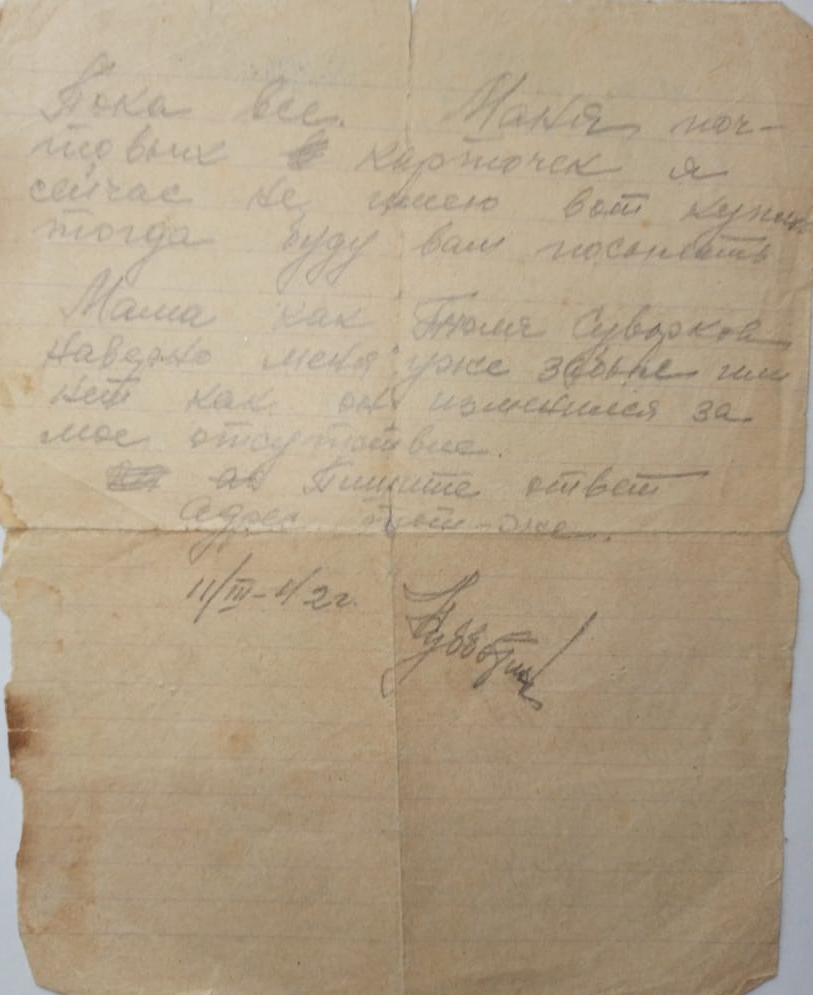 Пока все. Маня, поч-
товых карточек я
сейчас не имею вот куплю
тогда буду вам посылать
Мама как Толя Суворков
наверно меня уже забыл или
нет как он изменился за
мое отсутствие.
Пишите ответ
Адрес тот-же.
11/III-42г.